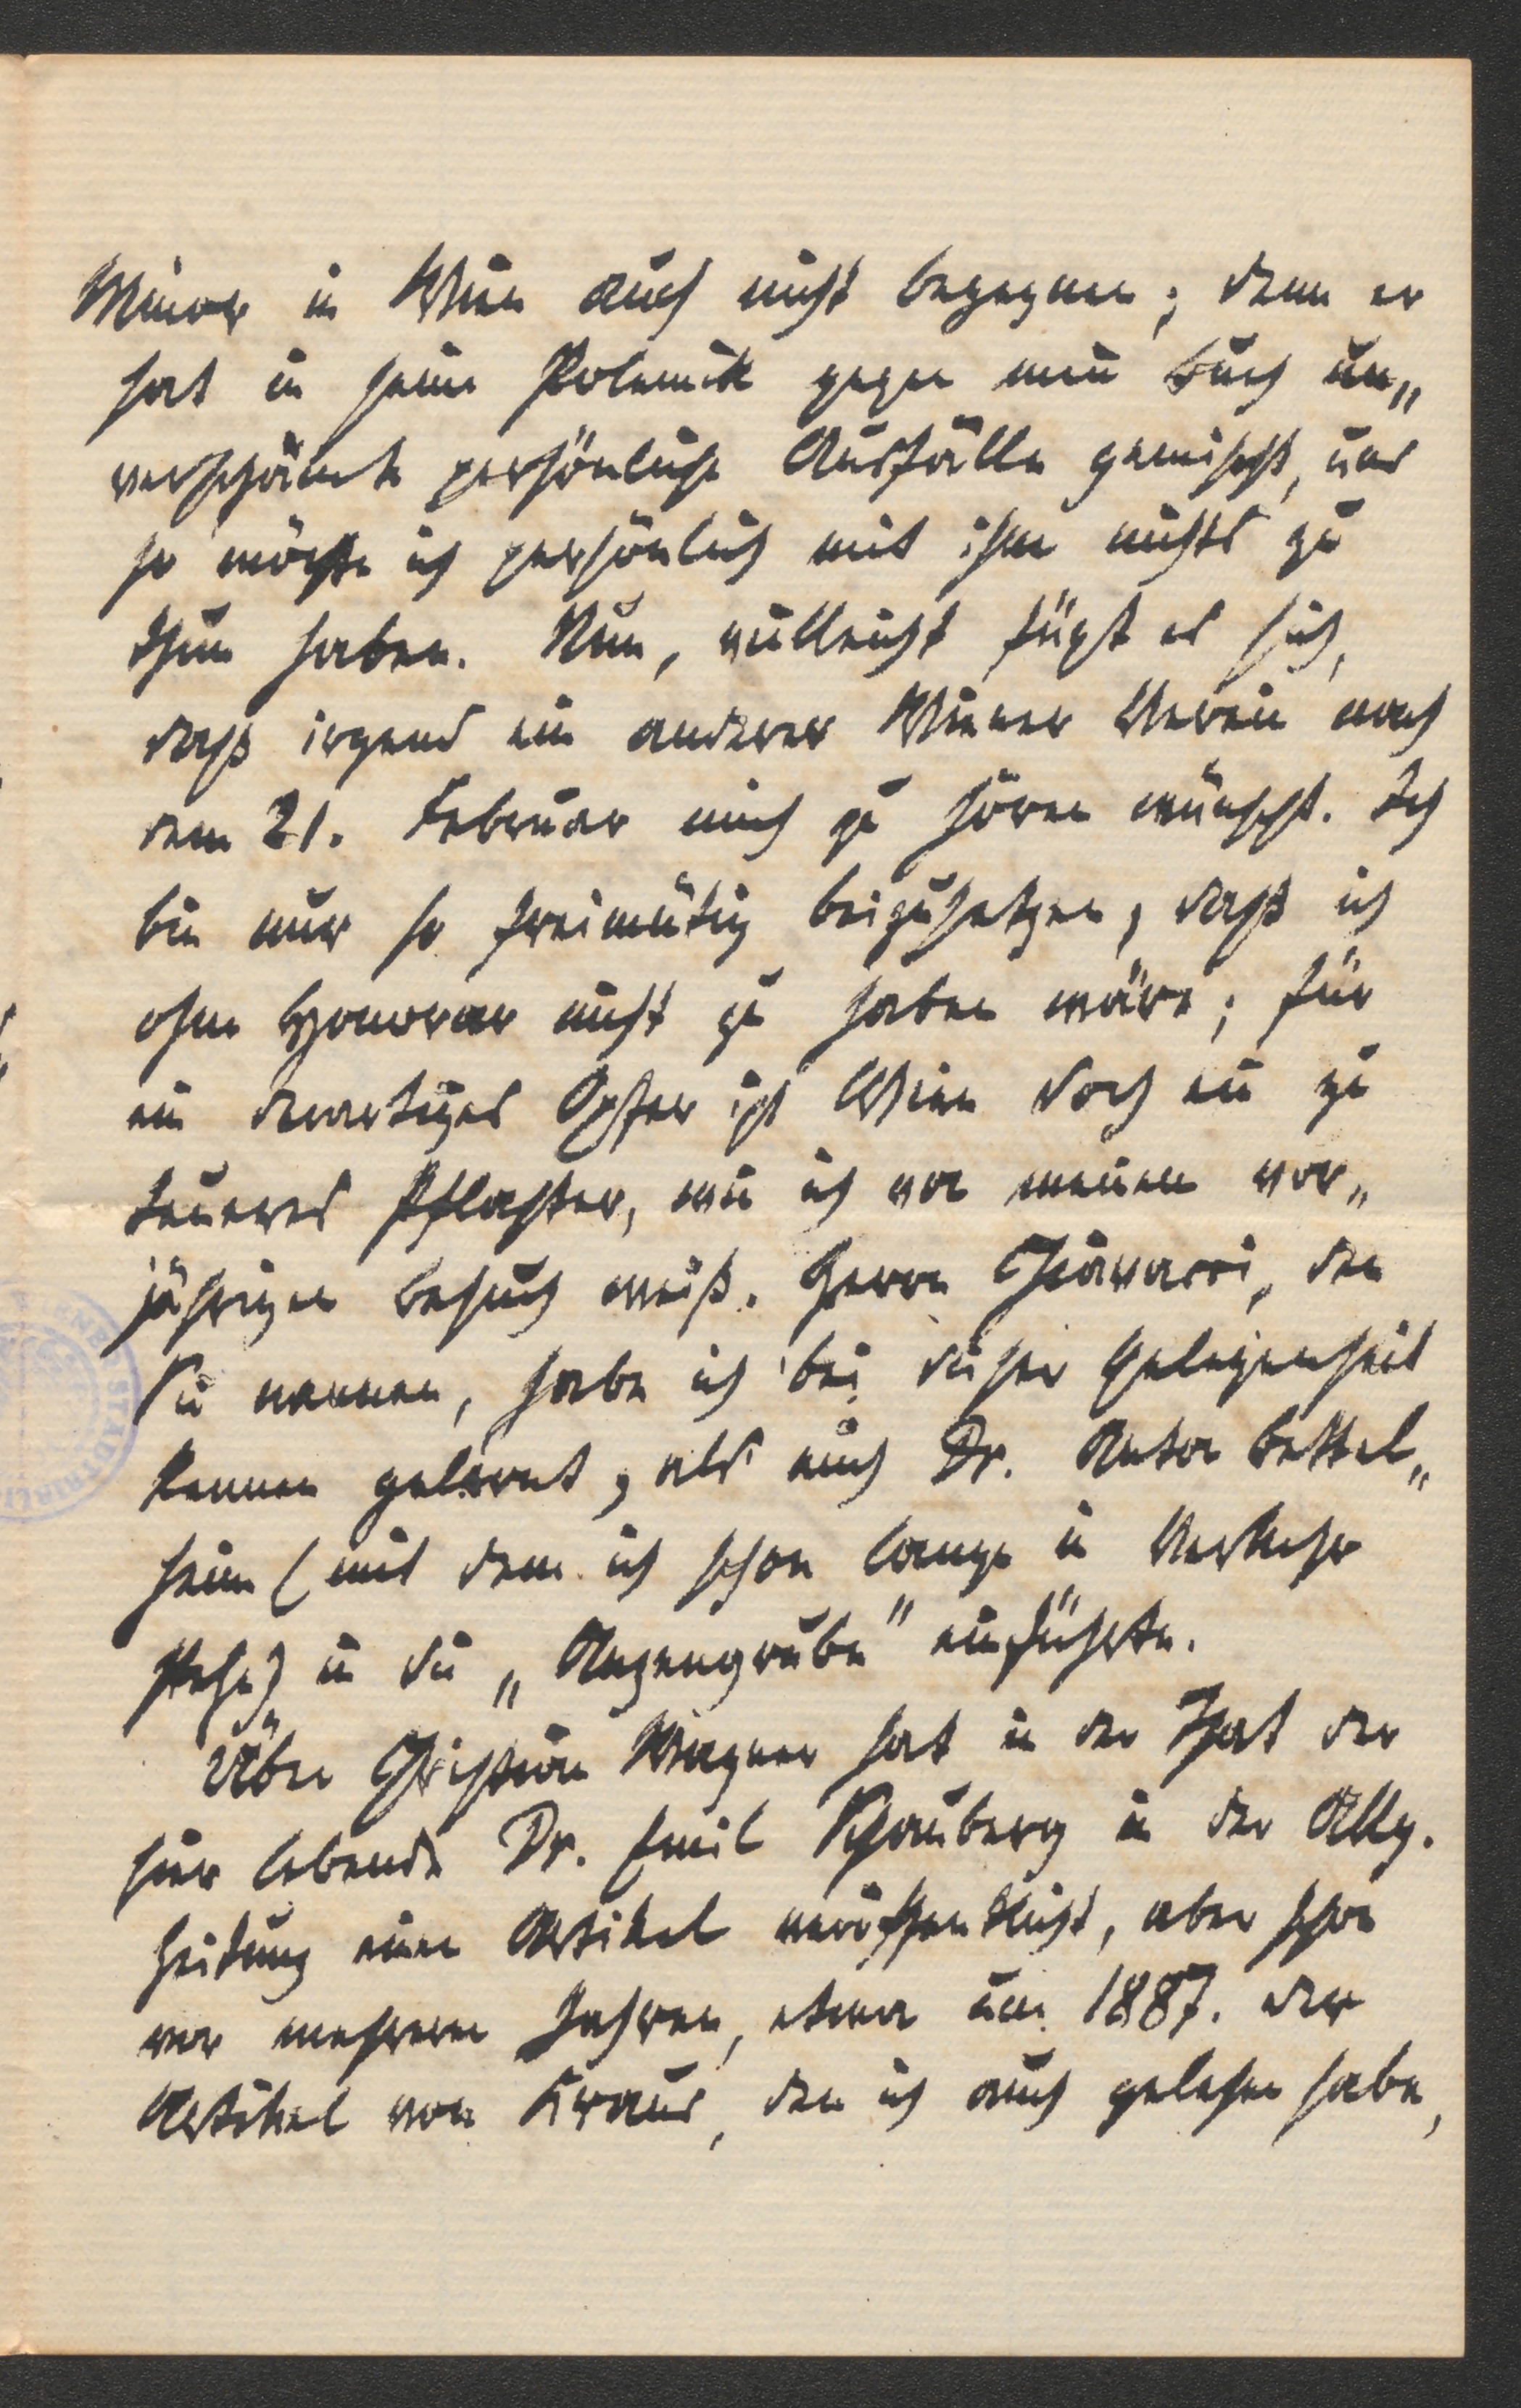 Minor in Wien auch nicht begegnen; denn er
hat in seine Polemik gegen mein Buch un„
verschämte persönliche Ausfälle gemischt, und
so möchte ich persönlich mit ihm nichts zu
thun haben. Nun, vielleicht fügt es sich,
daß irgend ein anderer Wiener Verein nach
dem 21. Februar mich zu hören wünscht. Ich
bin nur so freimütig beizusetzen, daß ich
ohne Honorar nicht zu haben wäre; für
ein derartiges Opfer ist Wien doch ein zu
teueres Pflaster, wie ich von meinem vor„
jährigen Besuch weiß. Herrn Chiavacci, den
Sie nennen, habe ich bei dieser Gelegenheit
kennen gelernt, als mich Dr. Anton Bettel„
heim (mit dem ich schon lange in Verkehr
stehe) in die „Anzengrube" einführte.
Über Christian Wagner hat in der That der
hier lebende Dr. Emil Schauberg in der Allg.
Zeitung einen Artikel veröffentlicht, aber schon
vor mehreren Jahren, etwa um 1887. Der
Artikel von Kraus, den ich auch gelesen habe,